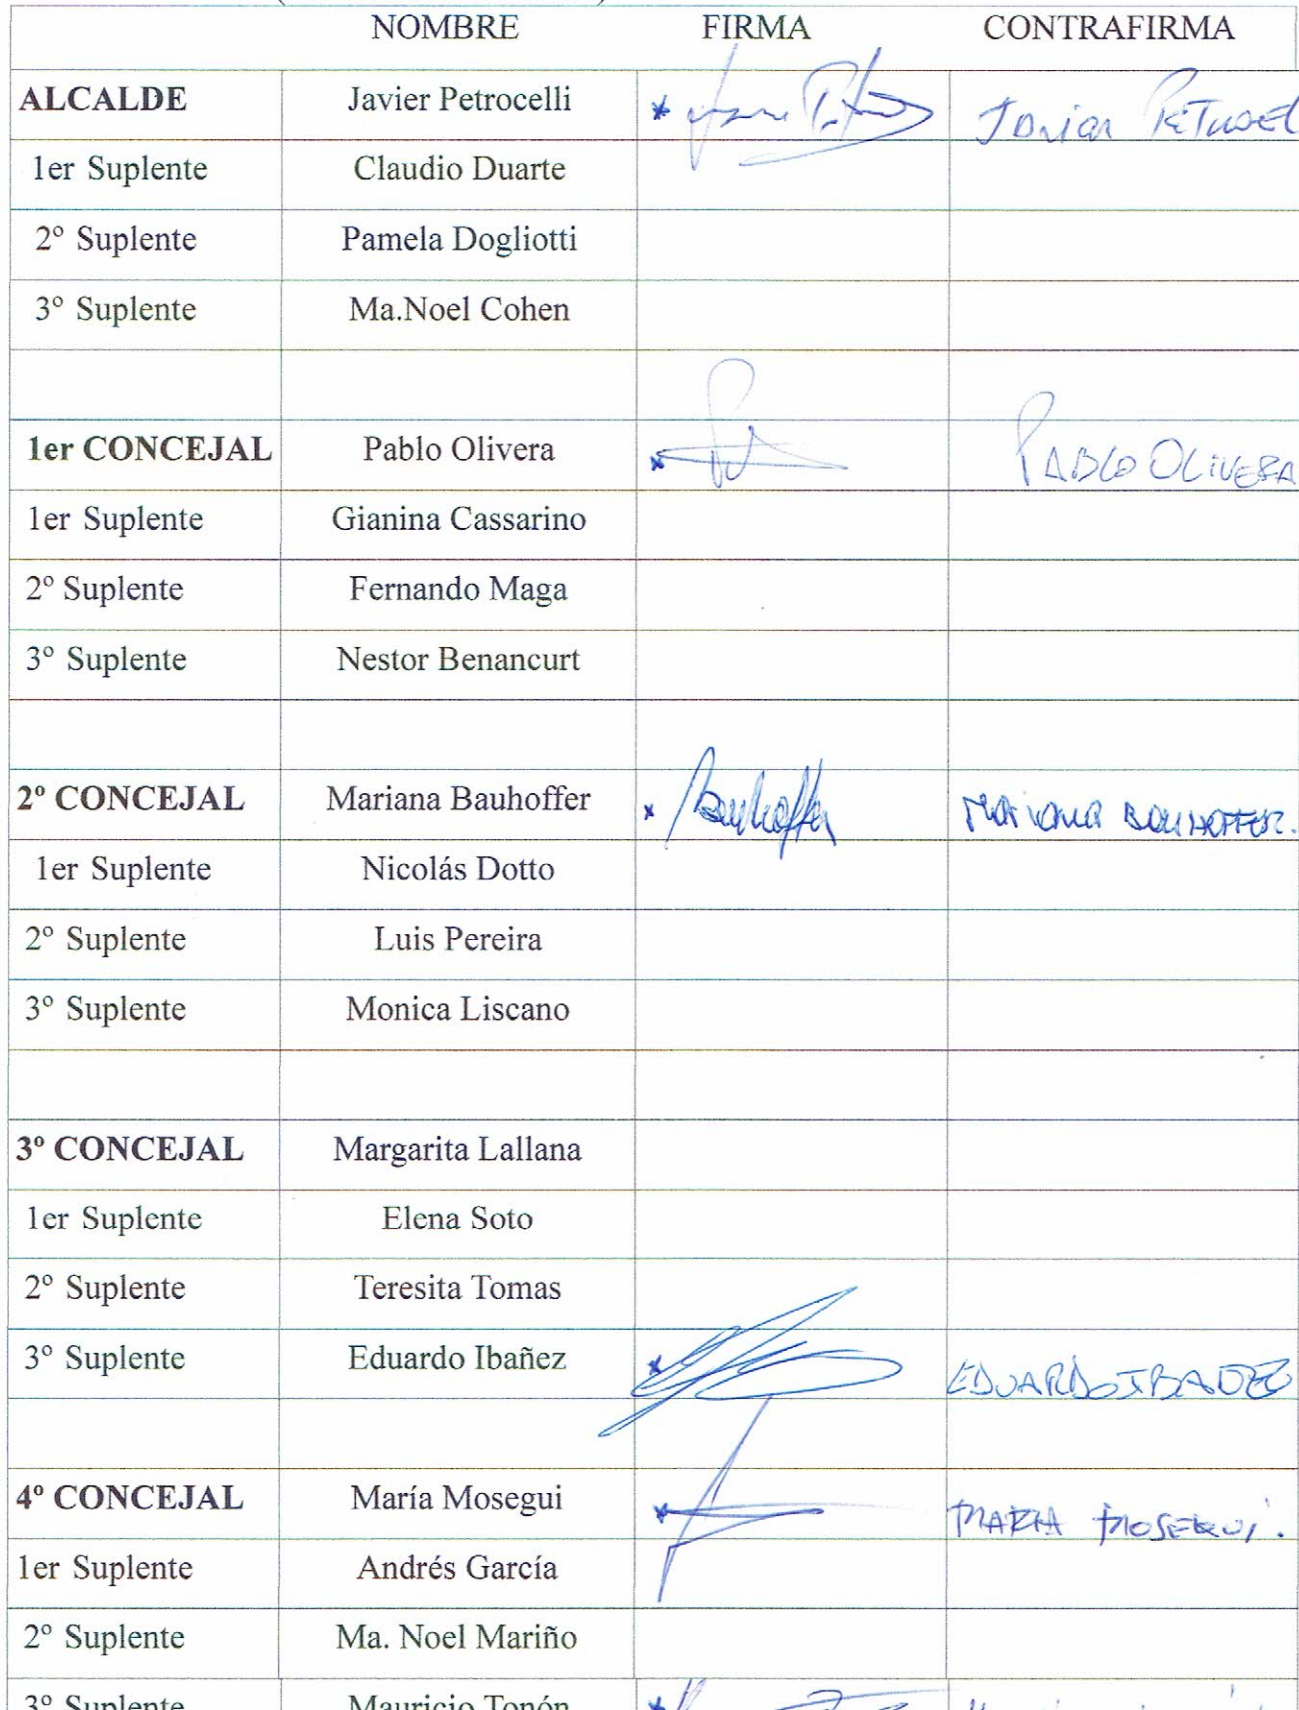 NOMBRE FIRMA CONTRAFIRMA
ALCALDE Javier Petrocelli * Javier
1er Suplente Claudio Duarte
2º Suplente Pamela Dogliotti
3º Suplente Ma.Noel Cohen
1er CONCEJAL Pablo Olivera x PABLO OLIVERA
1er Suplente Gianina Cassarino
2º Suplente Fernando Maga
3º Suplente Nestor Benancurt
2º CONCEJAL Mariana Bauhoffer x Bauhoffer MARIANA BAUHOFFER.
1er Suplente Nicolás Dotto
2º Suplente Luis Pereira
3º Suplente Monica Liscano
3º CONCEJAL Margarita Lallana
1er Suplente Elena Soto
2º Suplente Teresita Tomas
3º Suplente Eduardo Ibañez x EDUARDO IBAÑEZ
4º CONCEJAL María Mosegui x MARIA MOSEGUI.
1er Suplente Andrés García
2º Suplente Ma. Noel Mariño
3º Suplente Mauricio Tonón x